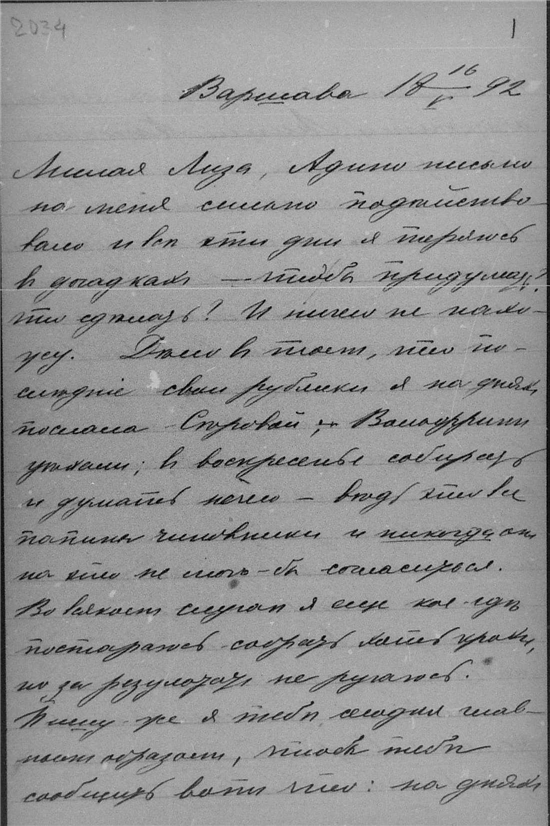 2034
1
Варшава 18 16/V 92
Милая Лиза, Адино письмо
на меня сильно подѣйство-
вало и всѣ эти дни я теряюсь
въ догадкахъ — чтобы придумать?
что сдѣлать? И ничего не нахо-
жу. Дѣло въ томъ, что по-
слѣдніе свои рублики я на дняхъ
послала
уѣхали; въ воскресенье собирать
и думать нечего — вѣдь это все
папины чиновники и никогда они
на это не могъ-бы согласиться.
Во всякомъ случаѣ я еще кое-гдѣ
постараюсь собрать хоть крохи,
но за результатъ не ручаюсь.
Пишу-же я тебѣ сегодня глав-
нымъ образомъ, чтобъ тебѣ
сообщить вотъ что: на дняхъ